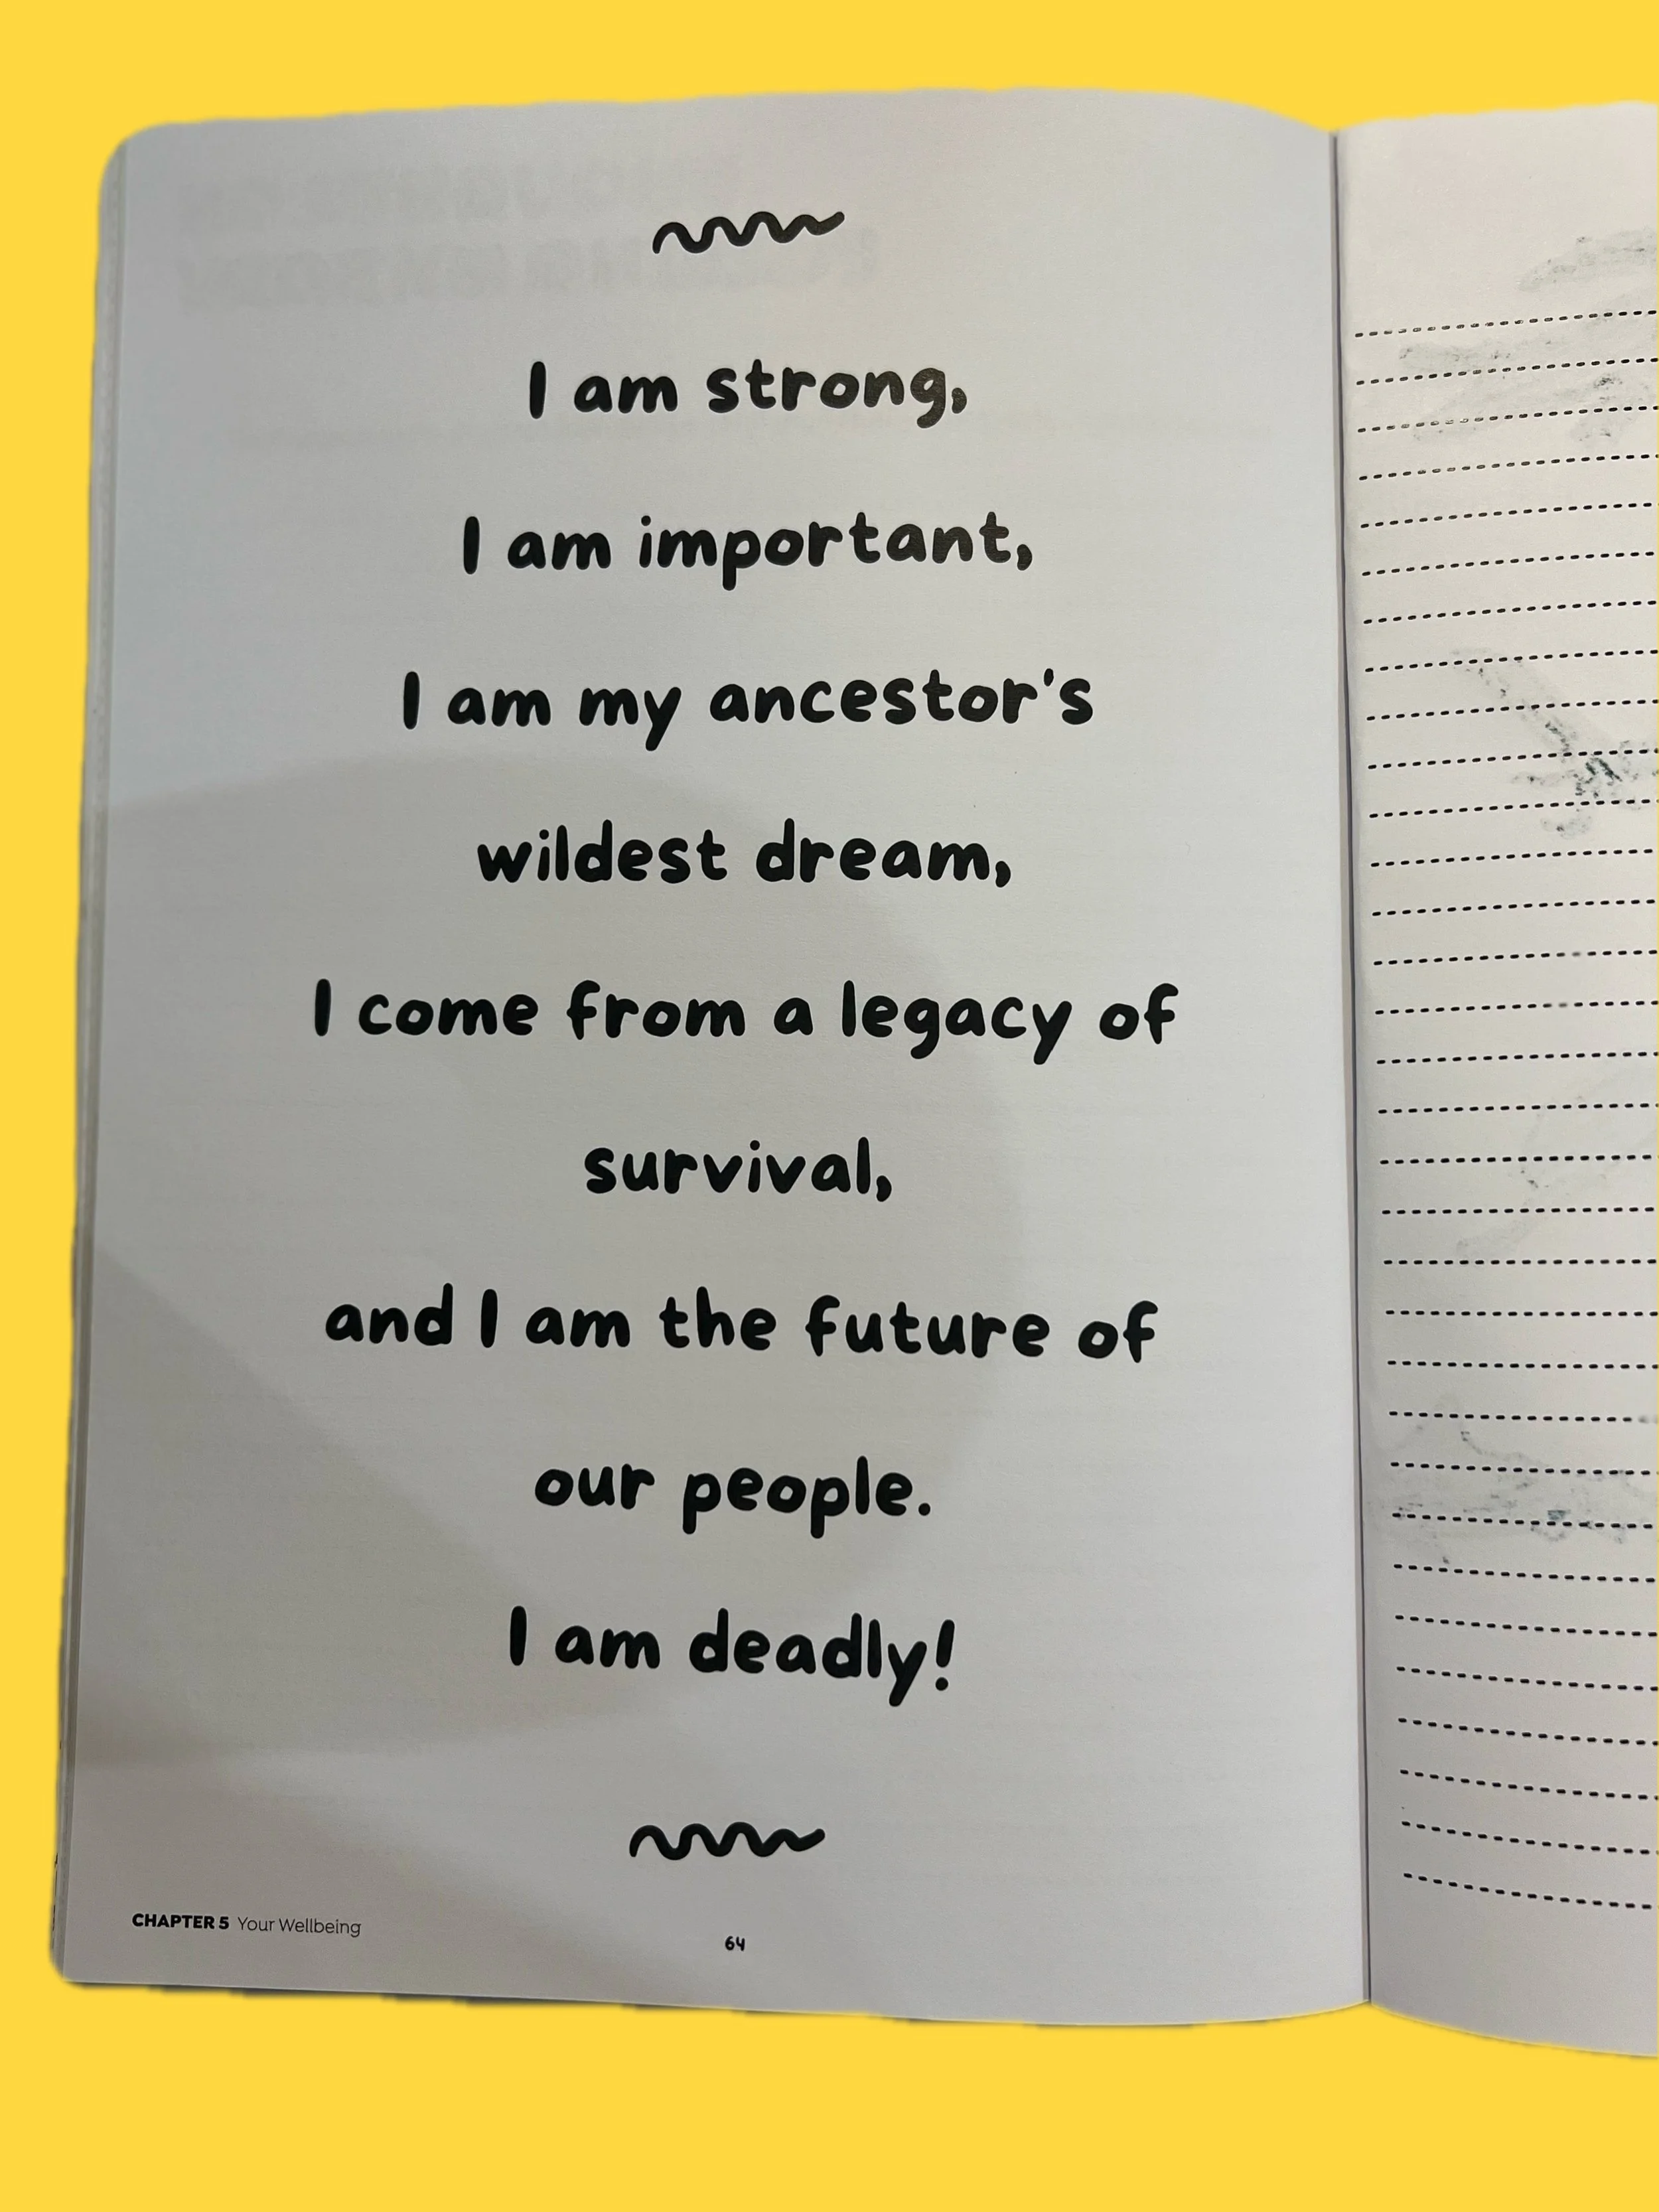 I am strong,
I am important,
I am my ancestor's
wildest dream,
I come from a legacy of
survival,
and I am the future of
our people.
I am deadly!
CHAPTER 5 Your Wellbeing
64